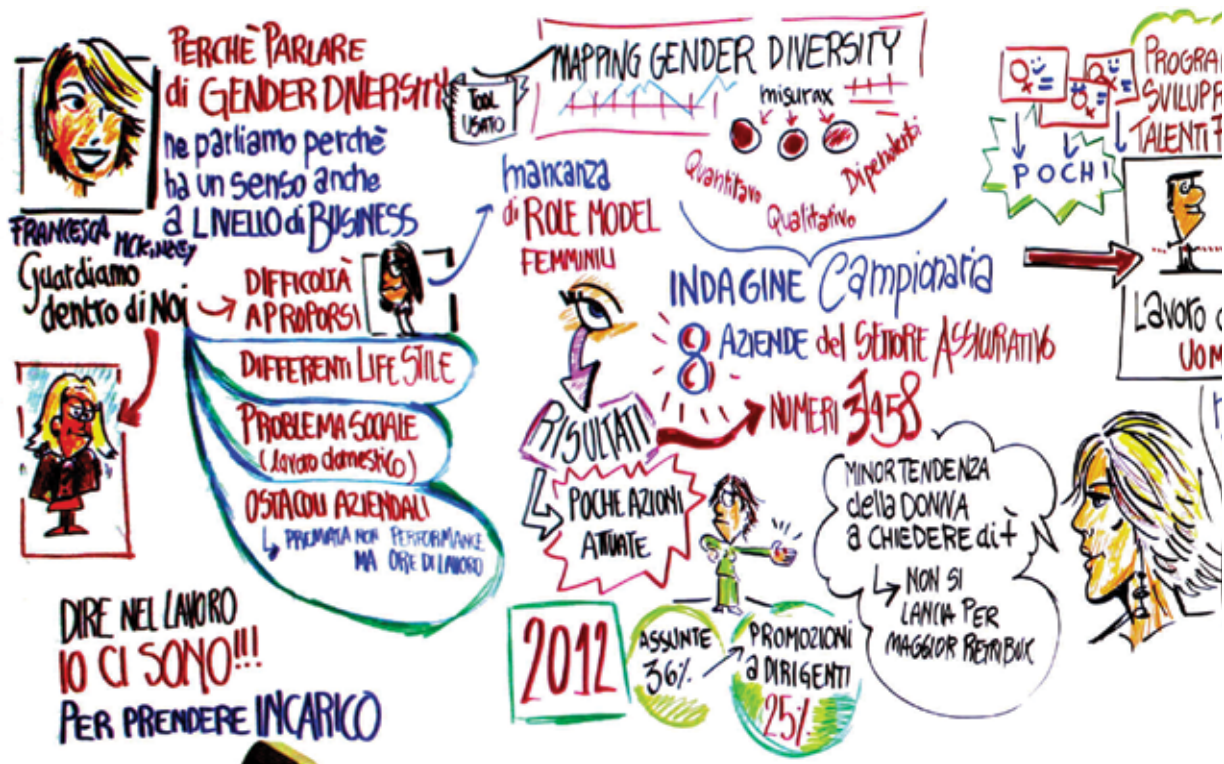 PERCHÈ PARLARE
di GENDER DIVERSITY
ne parliamo perchè
ha un senso anche
a LIVELLO di BUSINESS
FRANCESCA McKINSEY
Guardiamo
dentro di NOI
DIFFICOLTÀ
A PROPORSI
DIFFERENTI LIFE STILE
PROBLEMA SOCIALE
(lavoro domestico)
OSTACOLI AZIENDALI
PREMIATA NON PERFORMANCE
MA ORE DI LAVORO
DIRE NEL LAVORO
IO CI SONO!!!
PER PRENDERE INCARICO
TOOL
USATO
MAPPING GENDER DIVERSITY
misurax
Quantitavo
Qualitativo
Dipendenti
mancanza
di ROLE MODEL
FEMMINILI
INDAGINE Campionaria
8 AZIENDE del SETTORE ASSICURATIVO
RISULTATI
NUMERI 3458
POCHE AZIONI
ATTUATE
2012
ASSUNTE
36%
PROMOZIONI
a DIRIGENTI
25%
MINOR TENDENZA
della DONNA
a CHIEDERE di +
NON SI
LANCIA PER
MAGGIOR RETRIBUX
POCHI
SVILUPP
TALENTI
Lavoro
UOM